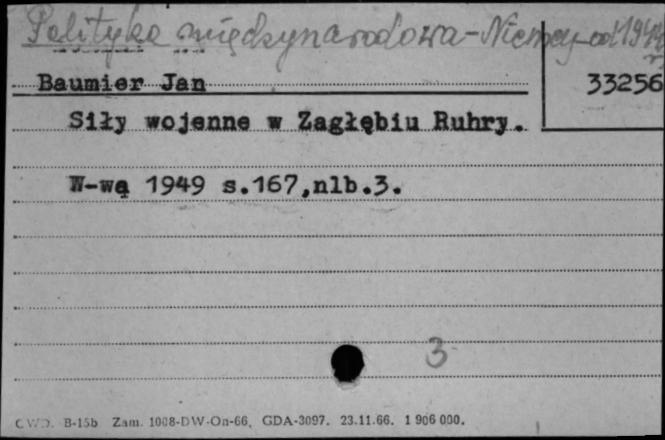 Polityka międzynarodowa-Niemcy-od 1945 r.
Baumier Jan
33256
Siły wojenne w Zagłębiu Ruhry.
W-wą 1949 s.167,nlb.3.
3
CWD. B-15b Zam. 1008-DW-On-66, GDA-3097. 23.11.66. 1 906 000.